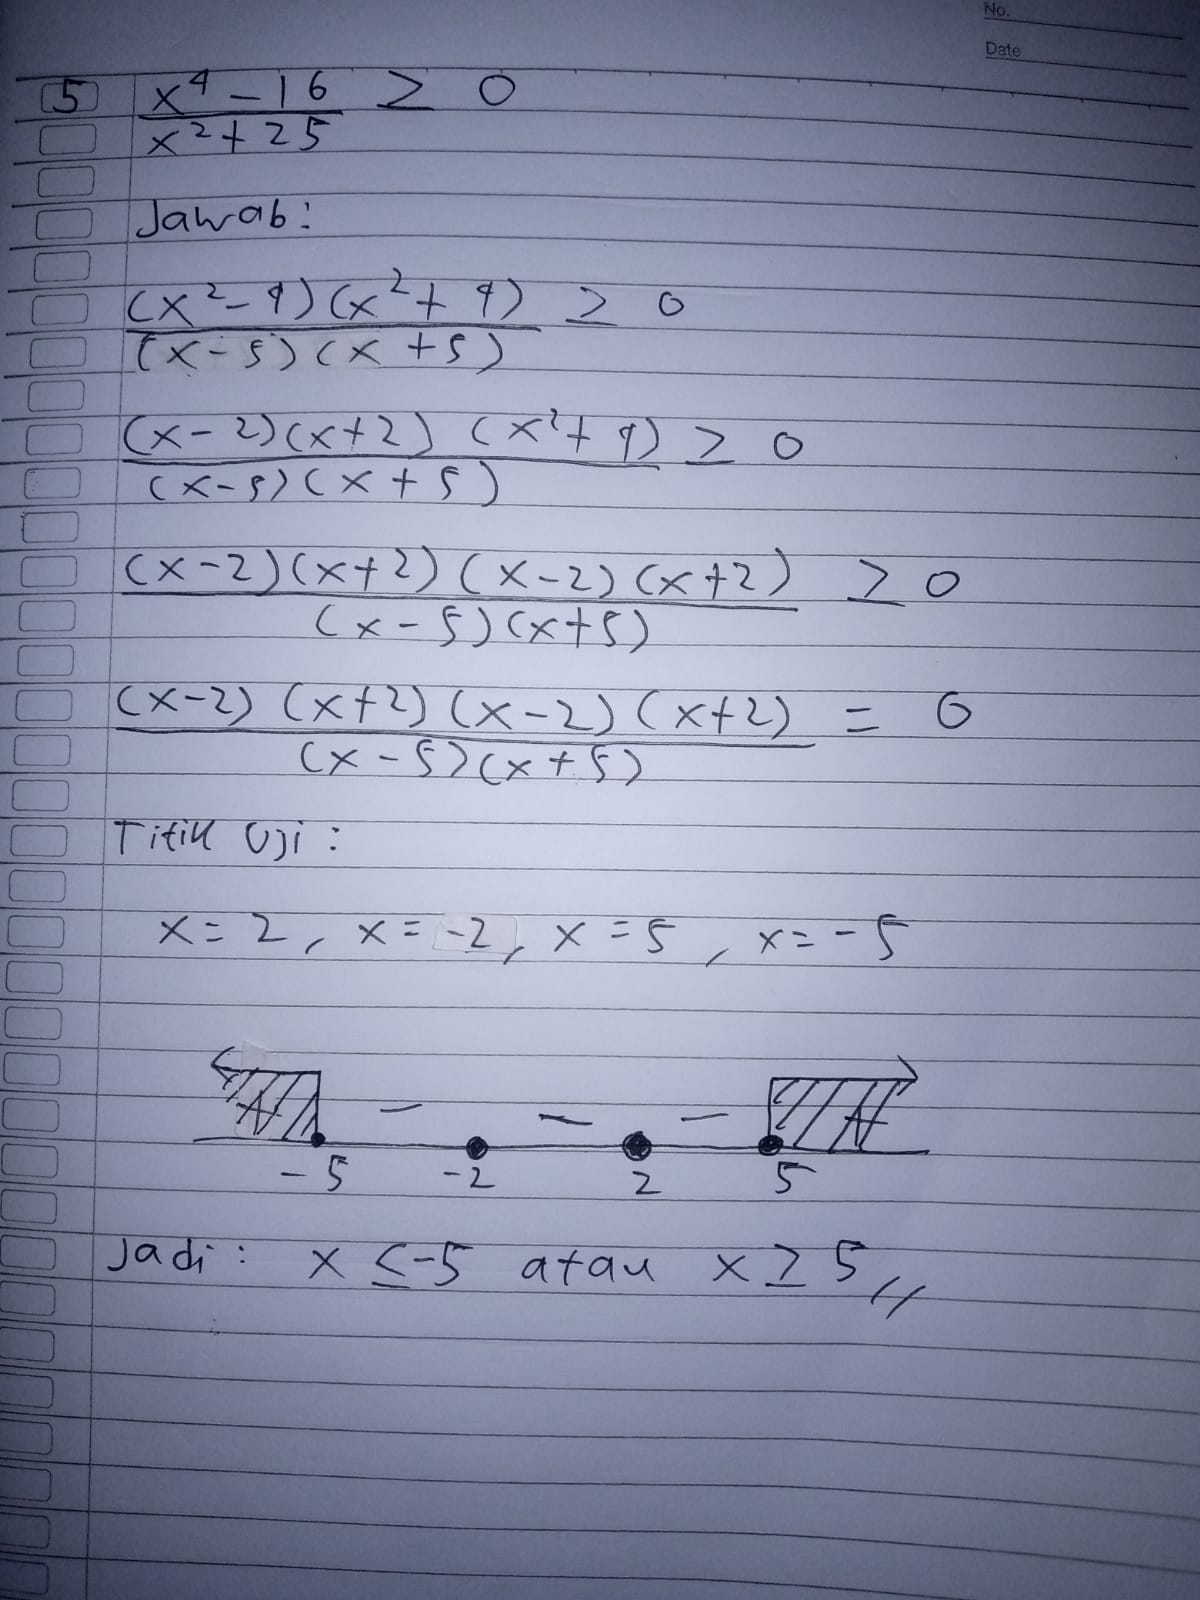 No.
Date
5 x⁴ - 16 ≥ 0
x² + 25
Jawab:
(x² - 4) (x² + 4) ≥ 0
(x - 5) (x + 5)
(x - 2) (x + 2) (x² + 4) ≥ 0
(x - 5) (x + 5)
(x - 2) (x + 2) (x - 2) (x + 2) ≥ 0
(x - 5) (x + 5)
(x - 2) (x + 2) (x - 2) (x + 2) = 0
(x - 5) (x + 5)
Titik Uji :
x = 2, x = -2, x = 5, x = -5
+ - - - +
-5 -2 2 5
Jadi : x ≤ -5 atau x ≥ 5 //